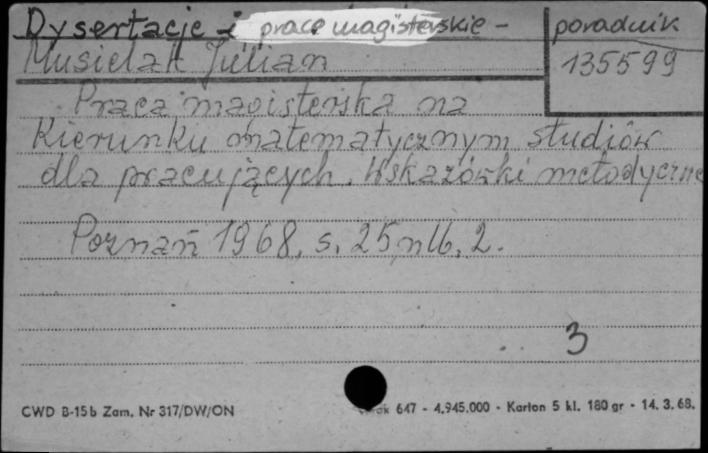 Dysertacje i prace magisterskie - poradnik
Musielak Julian 135599
Praca magisterska na
kierunku matematycznym studiów
dla pracujących. Wskazówki metodyczne
Poznań 1968, s. 25, nlb. 2.
3
CWD B-15b Zam. Nr 317/DW/ON 647 - 4.945.000 - Karton 5 kl. 180 gr - 14. 3. 68.